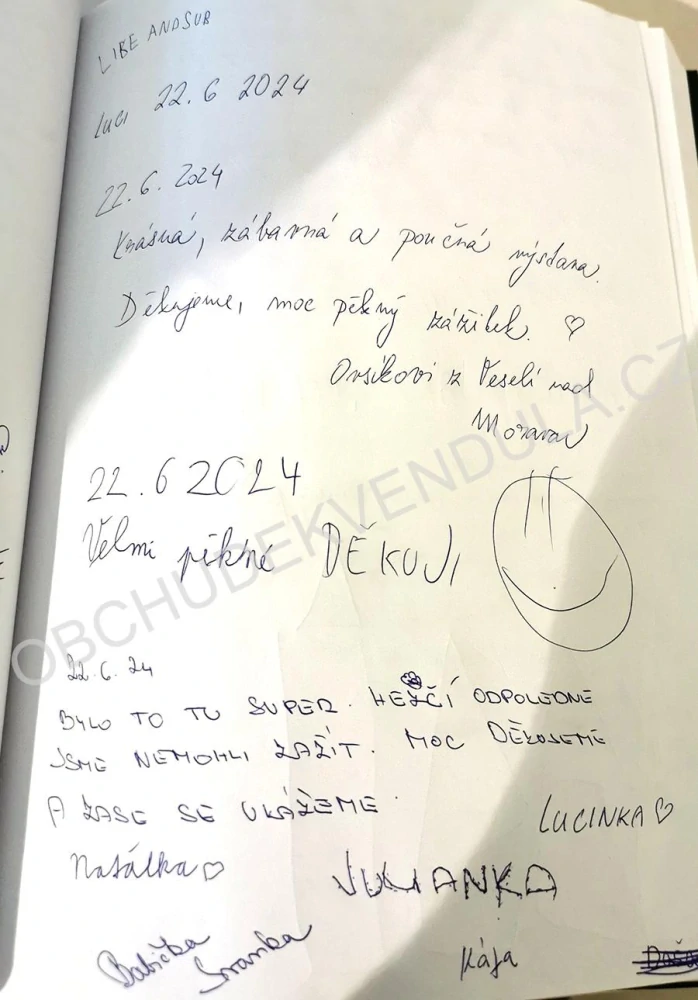 LIBE AND SUB
Luci 22.6 2024
22.6. 2024
Krásná, zábavná a poučná výstava.
Děkujeme, moc pěkný zážitek. ♡
Ovsíkovi z Veselí nad
Moravou
22.6 2024
Velmi pěkné DĚKUJI
22.6.24
BYLO TO TU SUPER. HEZČÍ ODPOLEDNE
JSME NEMOHLI ZAŽÍT. MOC DĚKUJEME
A ZASE SE UKÁŽEME.
LUCINKA ♡
Natálka ♡
JULIANKA
Babička
Kája
OBCHUDEKVENDULA.CZ